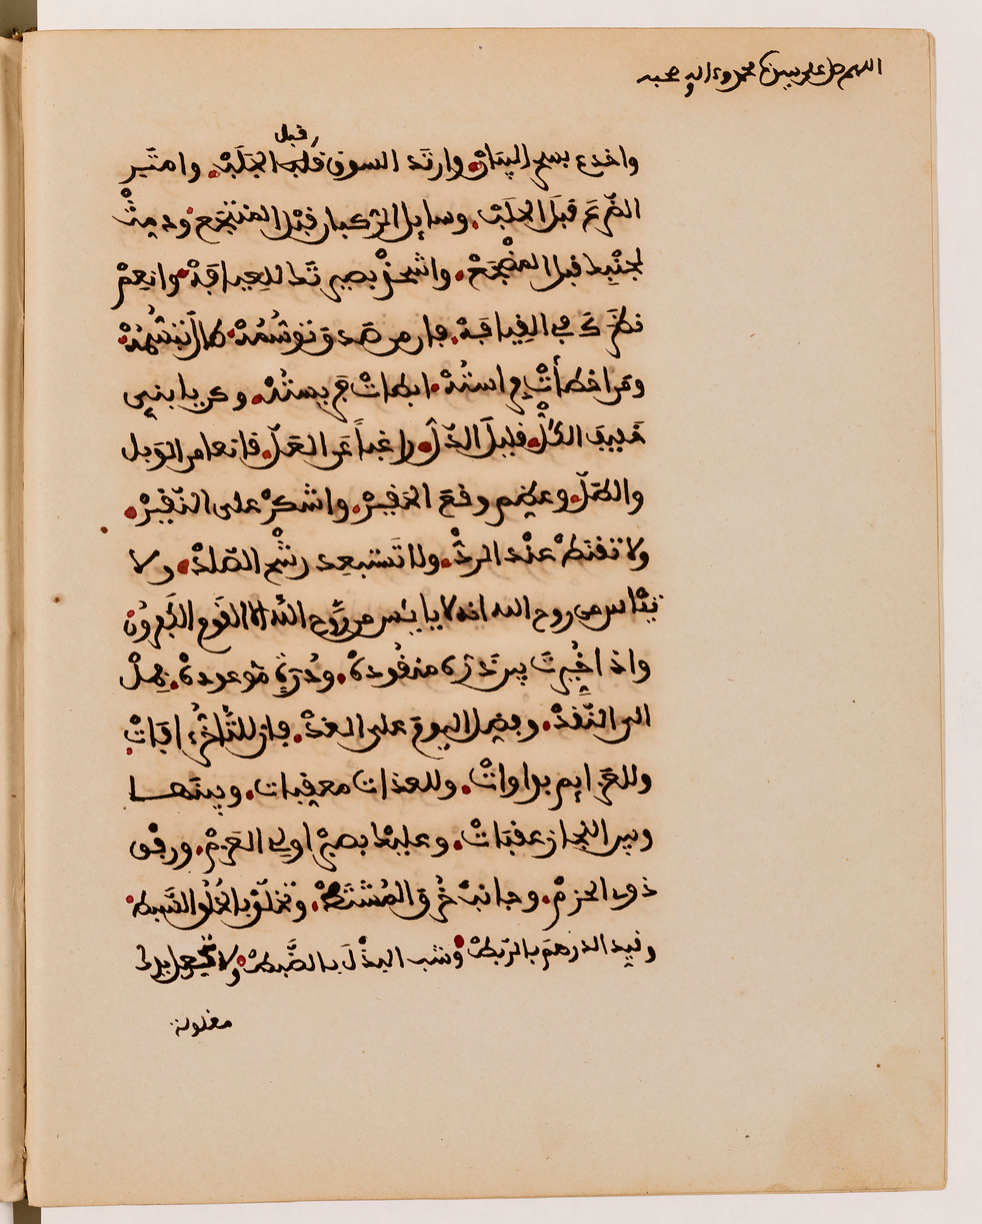 اللهم صل على سيدنا محمد وءاله وصحبه
قبل
واخدع بسحر البيان. وارتد السوق قلب الجلب. وامتر
الضرع قبل الحلب. وسايل الركبان قبل المنتجع ودمث
لجنبك قبل المضجع. واشحذ بصيرتك للعيافة. وانعم
نظرك في القيافة. فان من صدق توسمه. طال تبسمه.
ومن اخطأت فراسته. ابطات فريسته. وكن يا بني
خفيف الكل. قليل الدل. راغباً عن العل. قانعا من الوبل
والطل. وعظم وقع الحقير. واشكر على النقير.
ولا تقنط عند الرد. ولا تستبعد رشح الصلد. ولا
تيئاس من روح الله انه لا يايئس من روح الله الا القوم الكفرون
واذا خيرت بين ذرة منقودة. ودرة موعودة. فمل
الى النقد. وفضل اليوم على الغد. فان للتأخر ءافات
وللعزايم بداوات. وللعدات معقبات. وبينها
وبين النجاز عقبات. وعليك بصبر اولي العزم. ورفق
ذوي الحزم. وجانب خرق المشتط. وتخلق بالخلق السبط.
وقيد الدرهم بالربط. وشب البذل بالضبط. ولا تجعل يدك
مغلولة